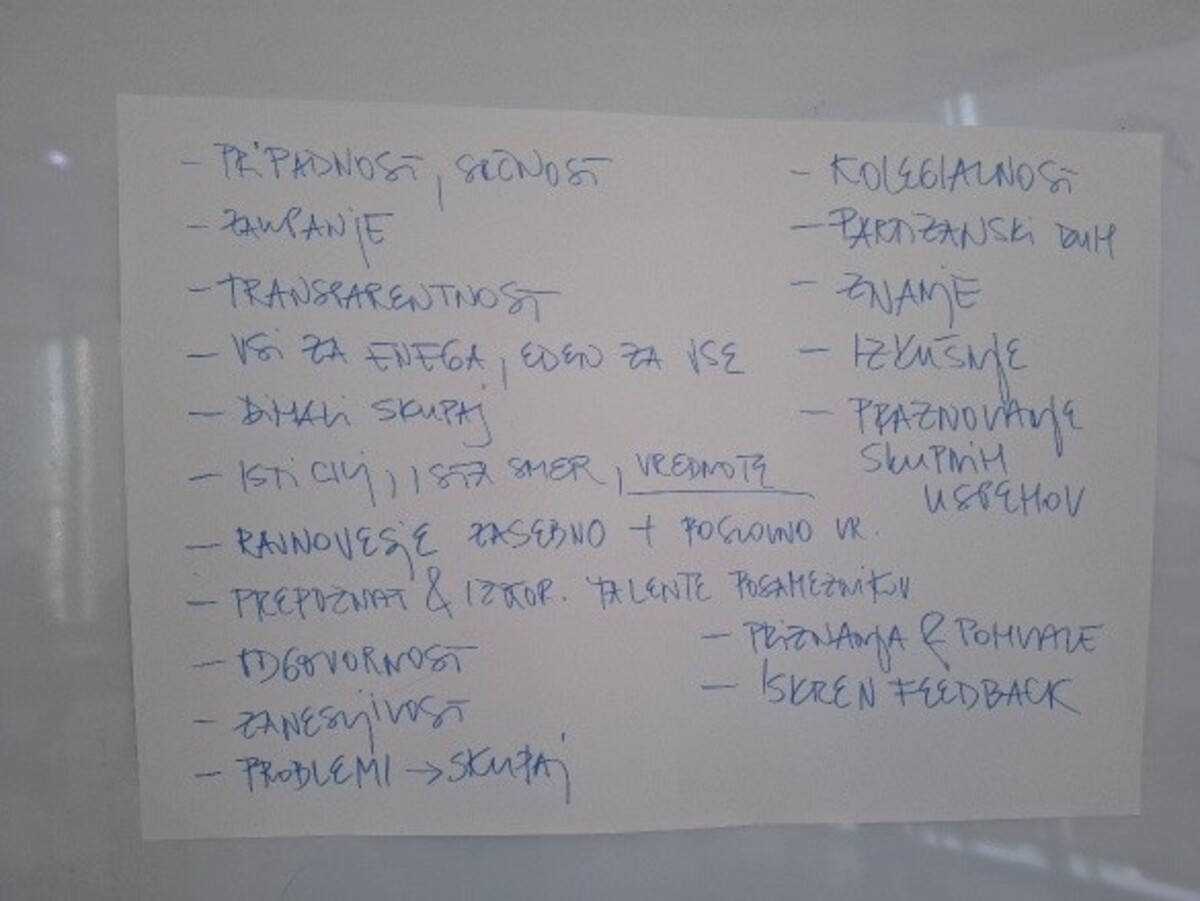 - PRIPADNOST, SRČNOST
- ZAUPANJE
- TRANSPARENTNOST
- VSI ZA ENEGA, EDEN ZA VSE
- DIHALI SKUPAJ
- ISTI CILJ, ISTA SMER, VREDNOTE
- RAVNOVESJE ZASEBNO + POSLOVNO VR.
- PREPOZNAT & IZKOR. TALENTE POSAMEZNIKOV
- ODGOVORNOST
- ZANESLJIVOST
- PROBLEMI → SKUPAJ
- KOLEGIALNOST
- PARTIZANSKI DUH
- ZNANJE
- IZKUŠNJE
- PRAZNOVANJE
SKUPNIH
USPEHOV
- PRIZNANJA & POHVALE
- ISKREN FEEDBACK